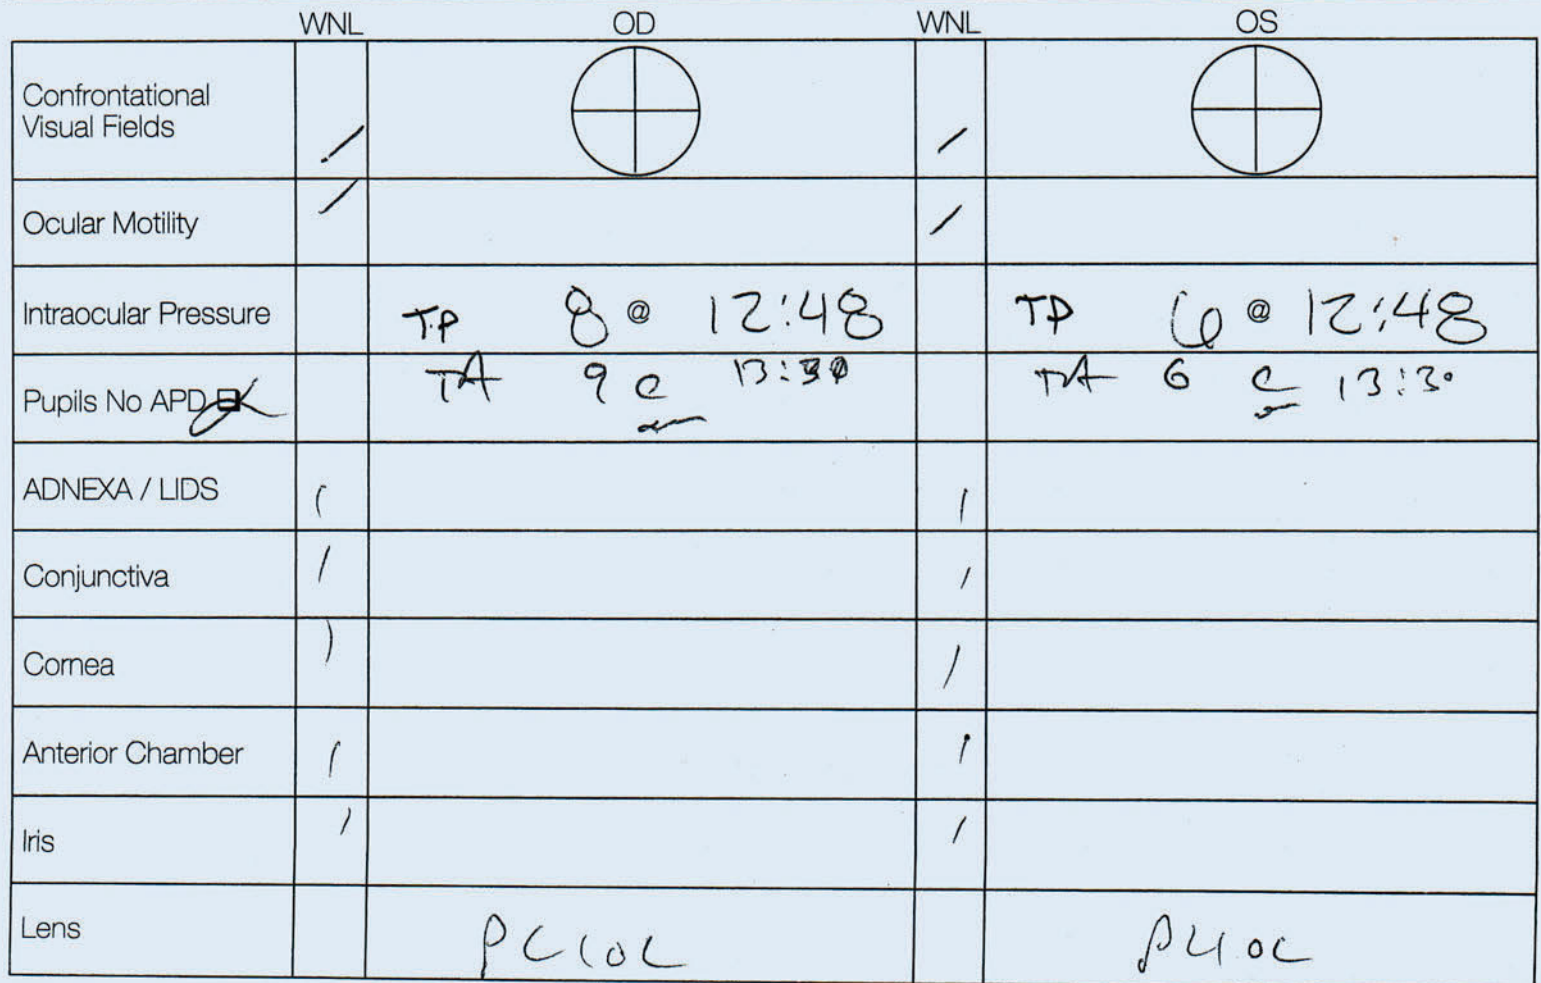 WNL OD WNL OS
Confrontational
Visual Fields
Ocular Motility
Intraocular Pressure TP 8 @ 12:48 TP 6 @ 12:48
Pupils No APD TA 9 @ 13:30 TA 6 @ 13:30
ADNEXA / LIDS
Conjunctiva
Cornea
Anterior Chamber
Iris
Lens PCIOL PCIOL